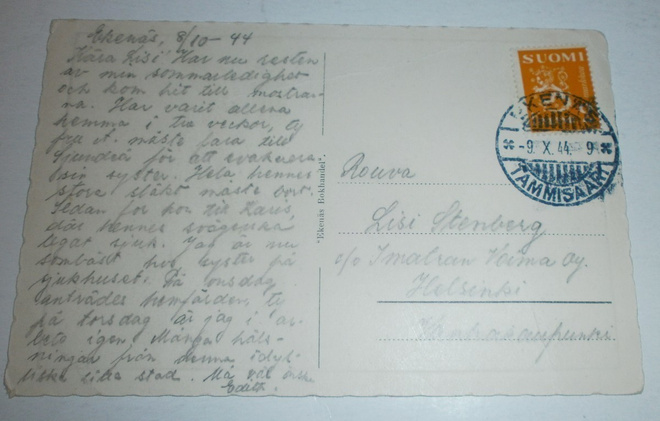 Ekenäs, 8/10-44
Kära Lisi Har nu resten
av min sommarledighet
och kom hit till mostrar-
na. Har varit allena
hemma i tre veckor, ty
fru A. måste fara till
Sjundeå för att evakuera
sin syster. Hela hennes
stora släkt måste bort.
Sedan for hon till Karis,
där hennes svägerska
legat sjuk. Jag är nu
hos syster på
sjukhuset. På onsdag
anträdes hemfärden, ty
på torsdag är jag i ar-
bete igen. Många häls-
ningar från denna idyl-
liska lilla stad. Må väl
Edith.
"Ekenäs Bokhandel".
SUOMI
EKENÄS
-9. X. 44. - 9
TAMMISAARI
Rouva
Lisi Stenberg
c/o Imatran Voima Oy.
Helsinki